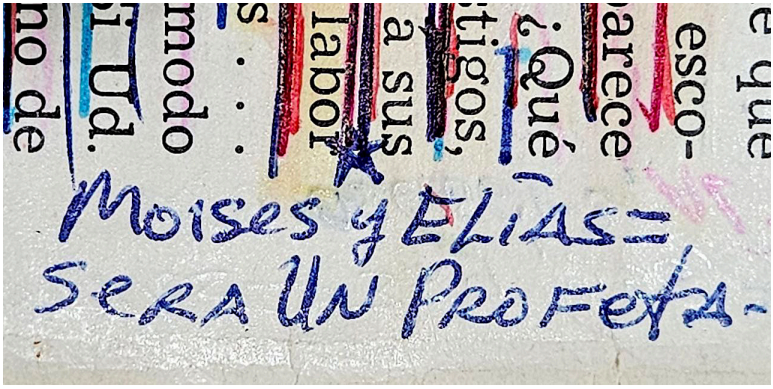 e que
esco-
parece
¿Qué
stigos,
a sus
labor
s . . .
modo
Si Ud.
no de
Moises y ELÍAS=
SERA UN PROFETA-